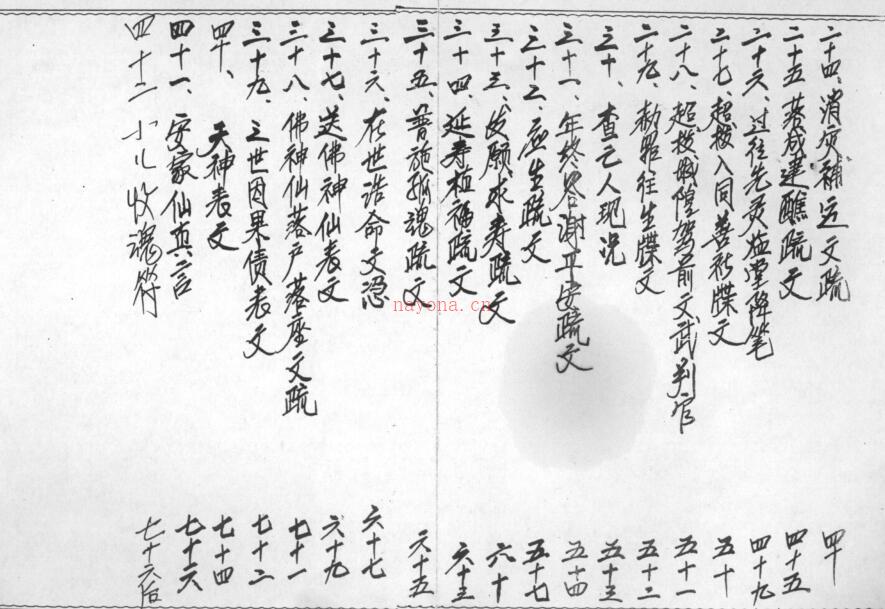 二十四、消灾補运文疏 四十
二十五、墓成建醮疏文 四十五
二十六、过往先灵临堂降笔 四十九
二十七、超拔入同善社牒文 五十
二十八、超拔城隍驾前文武判官 五十一
二十九、勅照往生牒文 五十二
三十、查亡人现况 五十三
三十一、年终答谢平安疏文 五十四
三十二、生疏文 五十七
三十三、发愿、求寿疏文 六十
三十四、延寿植福疏文 六十三
三十五、普施孤魂疏文 六十五
三十六、在世诰命文 六十七
三十七、送佛神仙表文 六十九
三十八、佛神仙落户落座文疏 七十一
三十九、三世因果债表文 七十二
四十、天神表文 七十四
四十一、安家仙真言 七十六
四十二 小儿收魂符 七十六后
nayona.cn